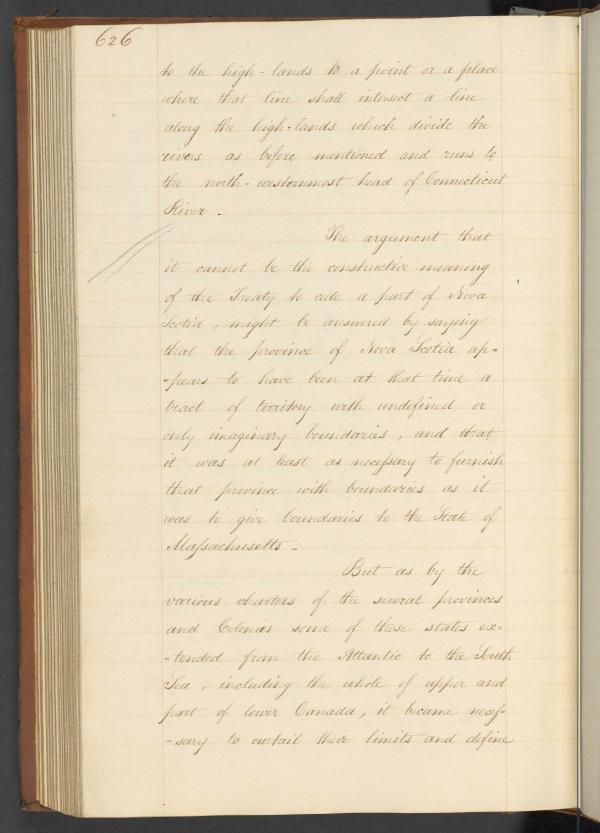 626
to the high-lands to a point or a place
where that line shall intersect a line
along the high-lands which divide the
rivers as before mentioned and runs to
the north-westernmost head of Connecticut
River.
The argument that
it cannot be the constructive meaning
of the Treaty to cede a part of Nova
Scotia, might be answered by saying
that the province of Nova Scotia ap-
-pears to have been at that time a
tract of territory with undefined or
only imaginary boundaries, and that
it was at least as necessary to furnish
that province with boundaries as it
was to give boundaries to the State of
Massachusetts.
But as by the
various charters of the several provinces
and Colonies some of these states ex-
-tended from the Atlantic to the South
Sea, including the whole of upper and
part of lower Canada, it became neces-
-sary to curtail their limits and define